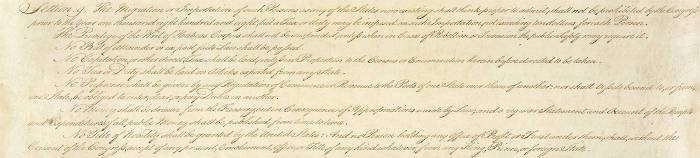 Section. 9. The Migration or Importation of such Persons as any of the States now existing shall think proper to admit, shall not be prohibited by the Congress
prior to the Year one thousand eight hundred and eight, but a Tax or duty may be imposed on such Importation, not exceeding ten dollars for each Person.
The Privilege of the Writ of Habeas Corpus shall not be suspended, unless when in Cases of Rebellion or Invasion the public Safety may require it.
No Bill of Attainder or ex post facto Law shall be passed.
No Capitation, or other direct, Tax shall be laid, unless in Proportion to the Census or Enumeration herein before directed to be taken.
No Tax or Duty shall be laid on Articles exported from any State.
No Preference shall be given by any Regulation of Commerce or Revenue to the Ports of one State over those of another: nor shall Vessels bound to, or from,
one State, be obliged to enter, clear, or pay Duties in another.
No Money shall be drawn from the Treasury, but in Consequence of Appropriations made by Law; and a regular Statement and Account of the Receipts
and Expenditures of all public Money shall be published from time to time.
No Title of Nobility shall be granted by the United States: And no Person holding any Office of Profit or Trust under them, shall, without the
Consent of the Congress, accept of any present, Emolument, Office, or Title, of any kind whatever, from any King, Prince, or foreign State.